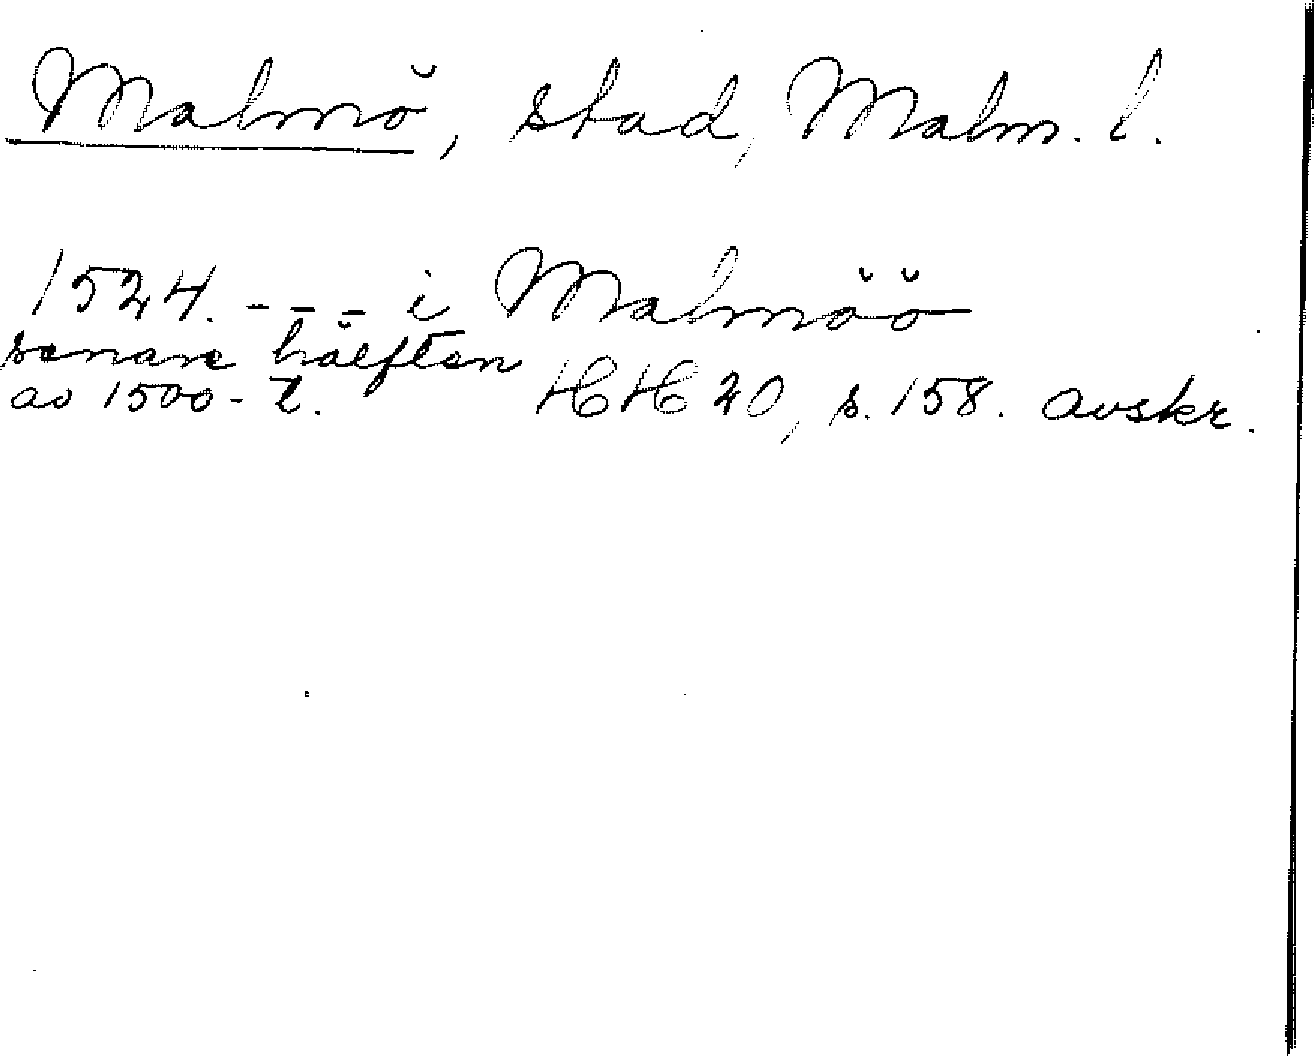 Malmö, stad, Malm. l.
1524. - - - i Malmöö
senare hälften
av 1500-t. HH 20, s. 158. avskr.